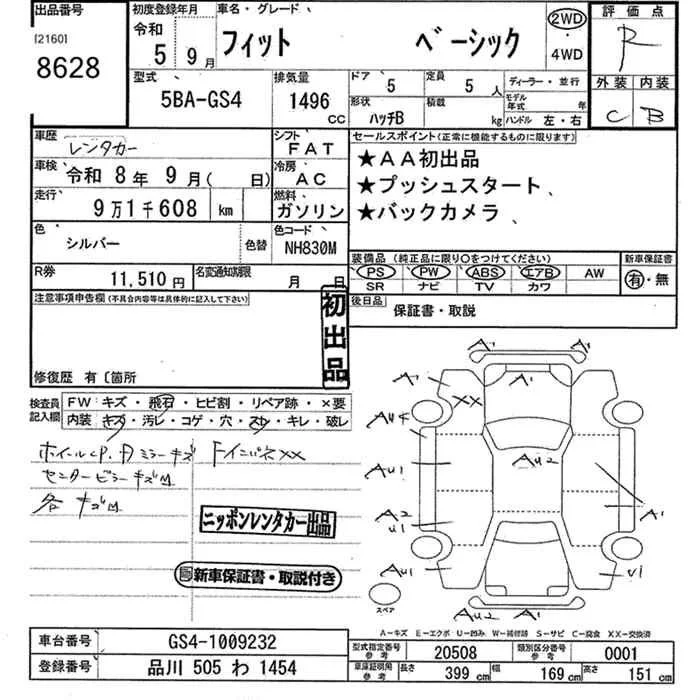 出品番号 初度登録年月 車名・グレード
[2160] 令和 フィット ベーシック 2WD 評価点
8628 5 年 9 月 ・ 4WD R
型式 排気量 ドア 5 定員 5 人 ディーラー・並行 外装 内装
5BA-GS4 1496 CC 形状 ハッチB 積載 kg モデル年式 年 ハンドル 左・右 C B
車歴 レンタカー シフト FAT セールスポイント(正常に機能するものに限ります)
車検 令和 8 年 9 月( 日) 冷房 AC ★AA初出品
走行 9万1千608 km 燃料 ガソリン ★プッシュスタート
★バックカメラ
色 シルバー 色替 色コード NH830M
装備品 (純正品に限り○をつけてください) 新車保証書
PS PW ABS エアB AW 有・無
SR ナビ TV カワ
R券 11,510円 名変通知期限 月 日
後日品 保証書・取説
注意事項申告欄(不具合内容等は具体的に記入して下さい)
初出品
修復歴 有〔箇所
検査員記入欄 FW キズ・飛石・ヒビ割・リペア跡・×要
内装 キズ・汚レ・コゲ・穴・スレ・キレ・破レ
ホイールCP. 日ミラーキズ ドインパネXX
センターピラーキズM
各キズM
ニッポンレンタカー出品
新車保証書・取説付き
A' A'
A' A'
XX
AU4
AU1 AU2
A2 A'
U1
AU1 U1
スペア AU2 A'
A-キズ E-エクボ U-凹み W-補修跡 S-サビ C-腐食 XX-交換済
車台番号 GS4-1009232 型式指定番号 参考 20508 類別区分番号 参考 0001
登録番号 品川 505 わ 1454 車庫証明用 参考 長さ 399 cm 幅 169 cm 高さ 151 cm